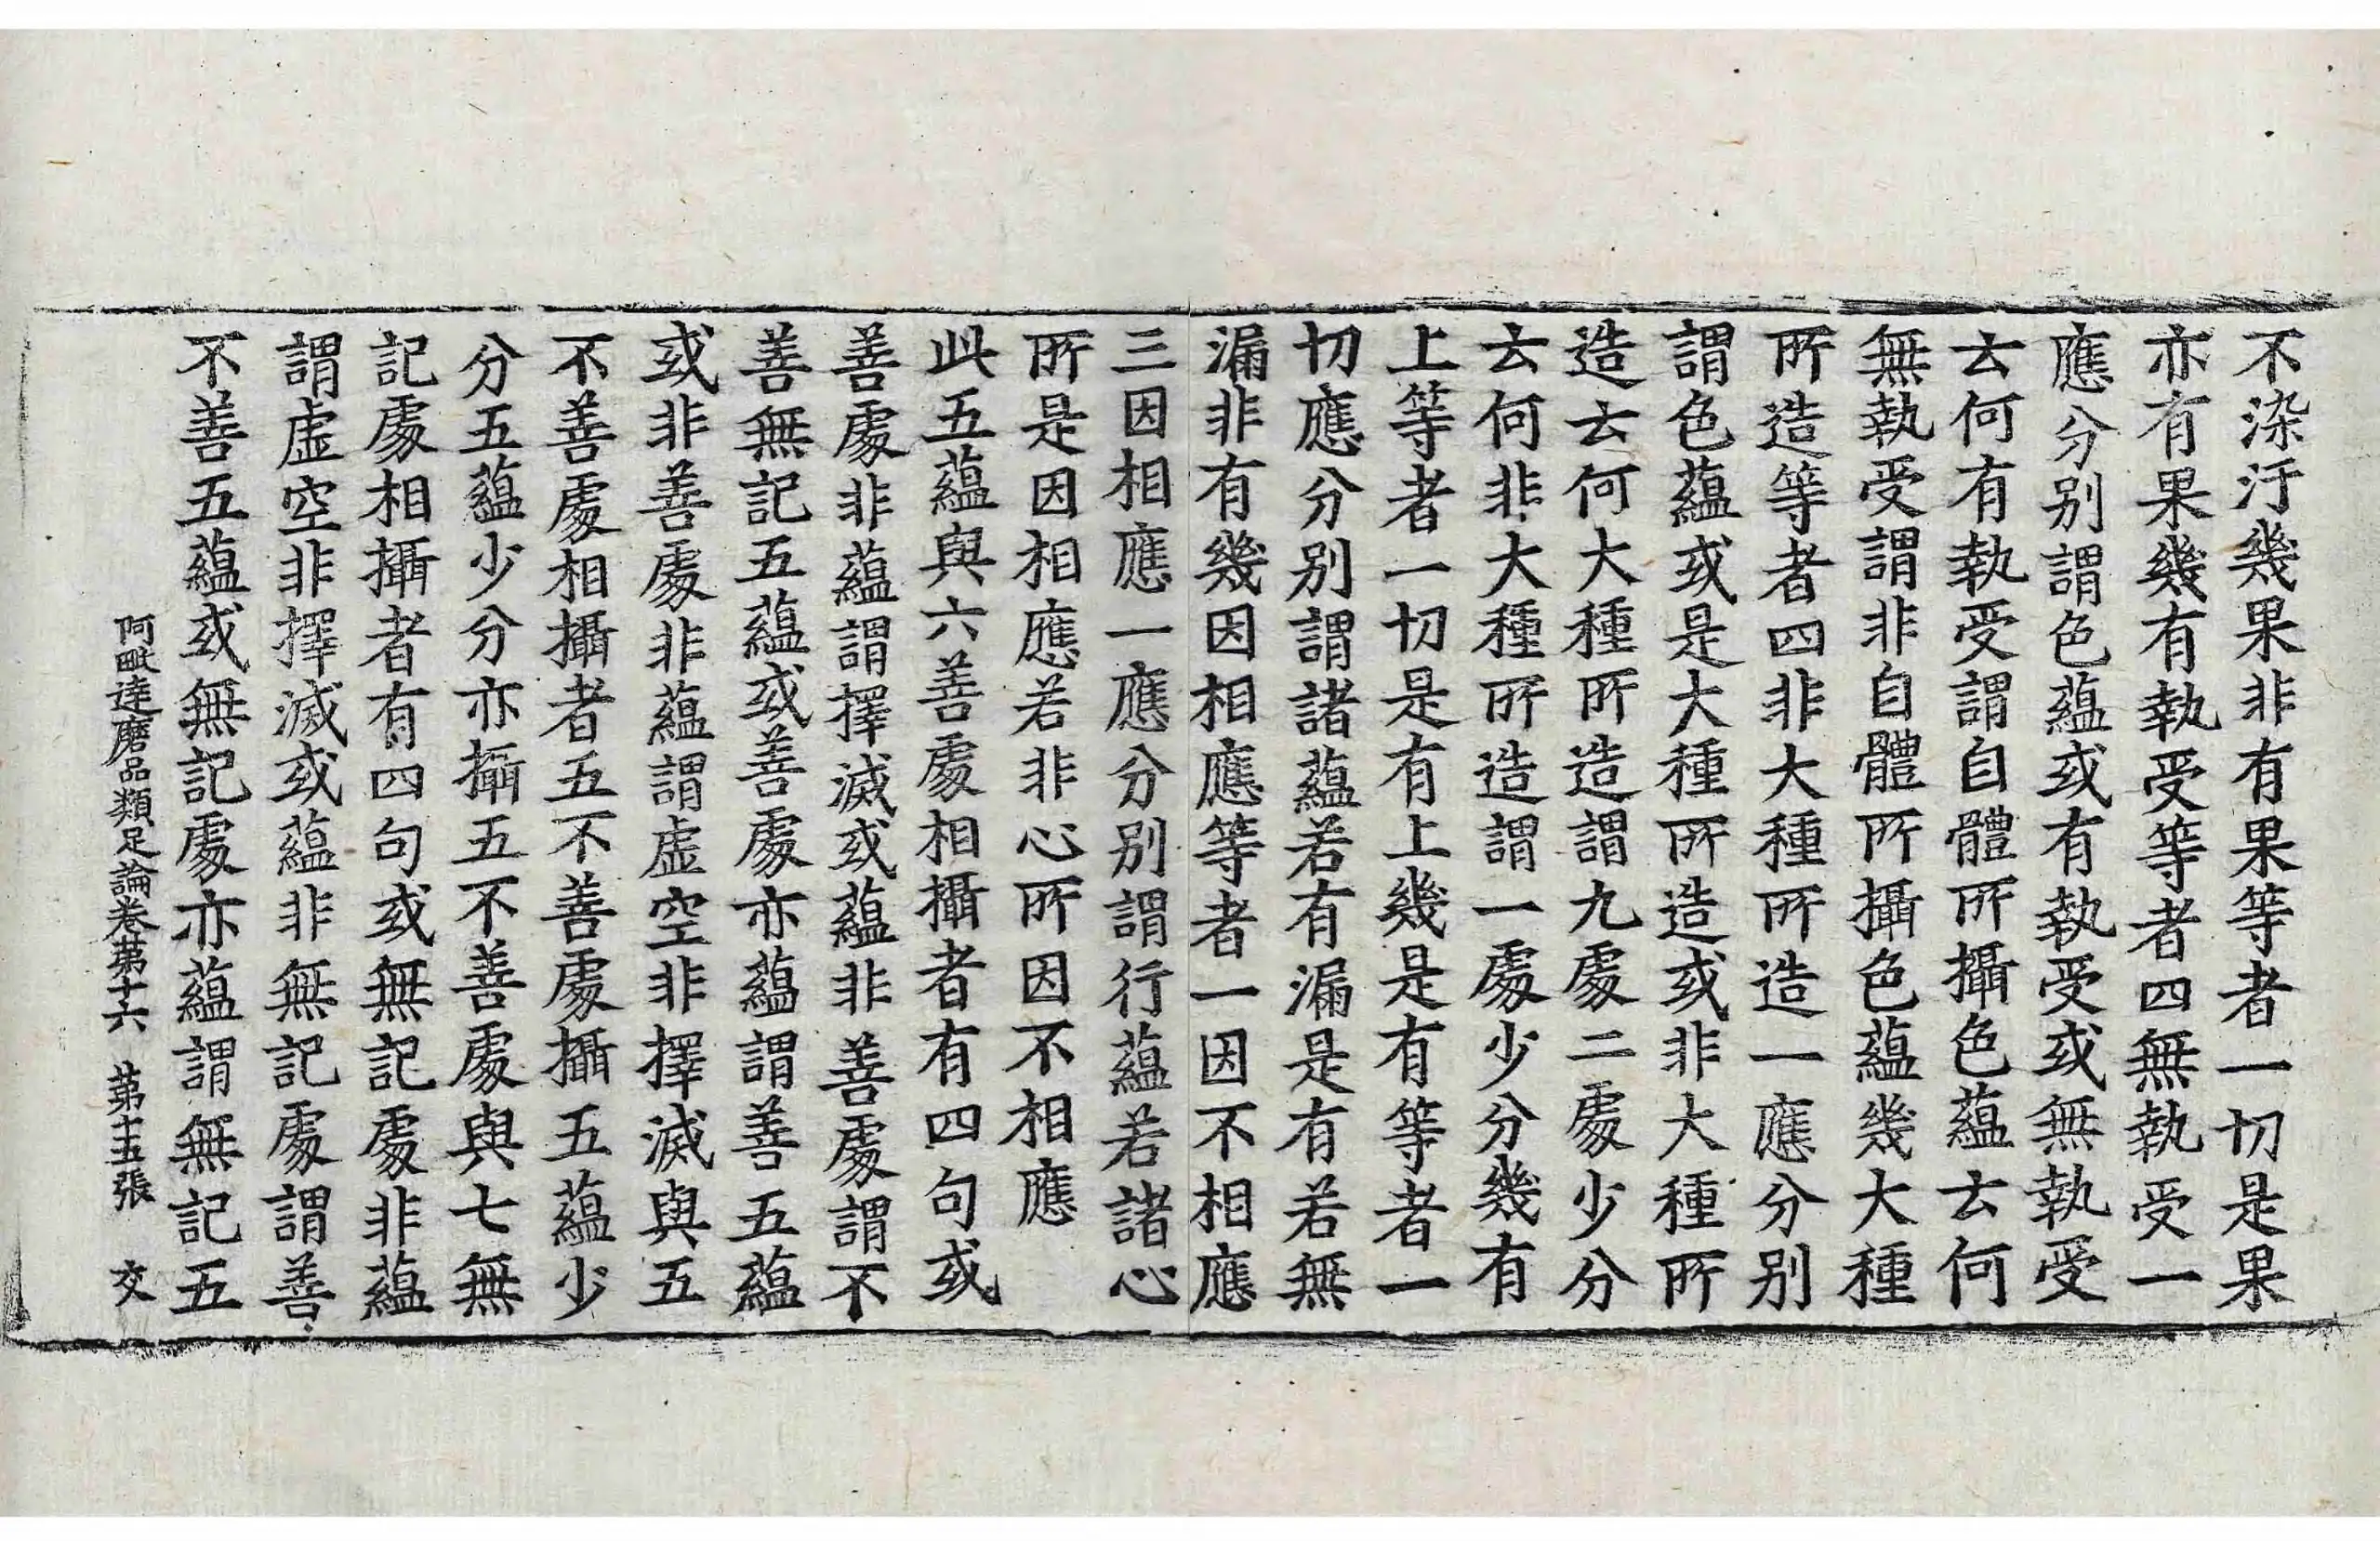 不染汙幾果非有果等者一切是果
亦有果幾有執受等者四無執受一
應分別謂色蘊或有執受或無執受
云何有執受謂自體所攝色蘊云何
無執受謂非自體所攝色蘊幾大種
所造等者四非大種所造一應分別
謂色蘊或是大種所造或非大種所
造云何大種所造謂九處二處少分
云何非大種所造謂一處少分幾有
上等者一切是有上幾是有等者一
切應分別謂諸蘊若有漏是有若無
漏非有幾因相應等者一因不相應
三因相應一應分別謂行蘊若諸心
所是因相應若非心所因不相應
此五蘊與六善處相攝者有四句或
善處非蘊謂擇滅或蘊非善處謂不
善無記五蘊或善處亦蘊謂善五蘊
或非善處非蘊謂虛空非擇滅與五
不善處相攝者五不善處攝五蘊少
分五蘊少分亦攝五不善處與七無
記處相攝者有四句或無記處非蘊
謂虛空非擇滅或蘊非無記處謂善
不善五蘊或無記處亦蘊謂無記五
阿毗達磨品類足論卷第十六 第十五張 交